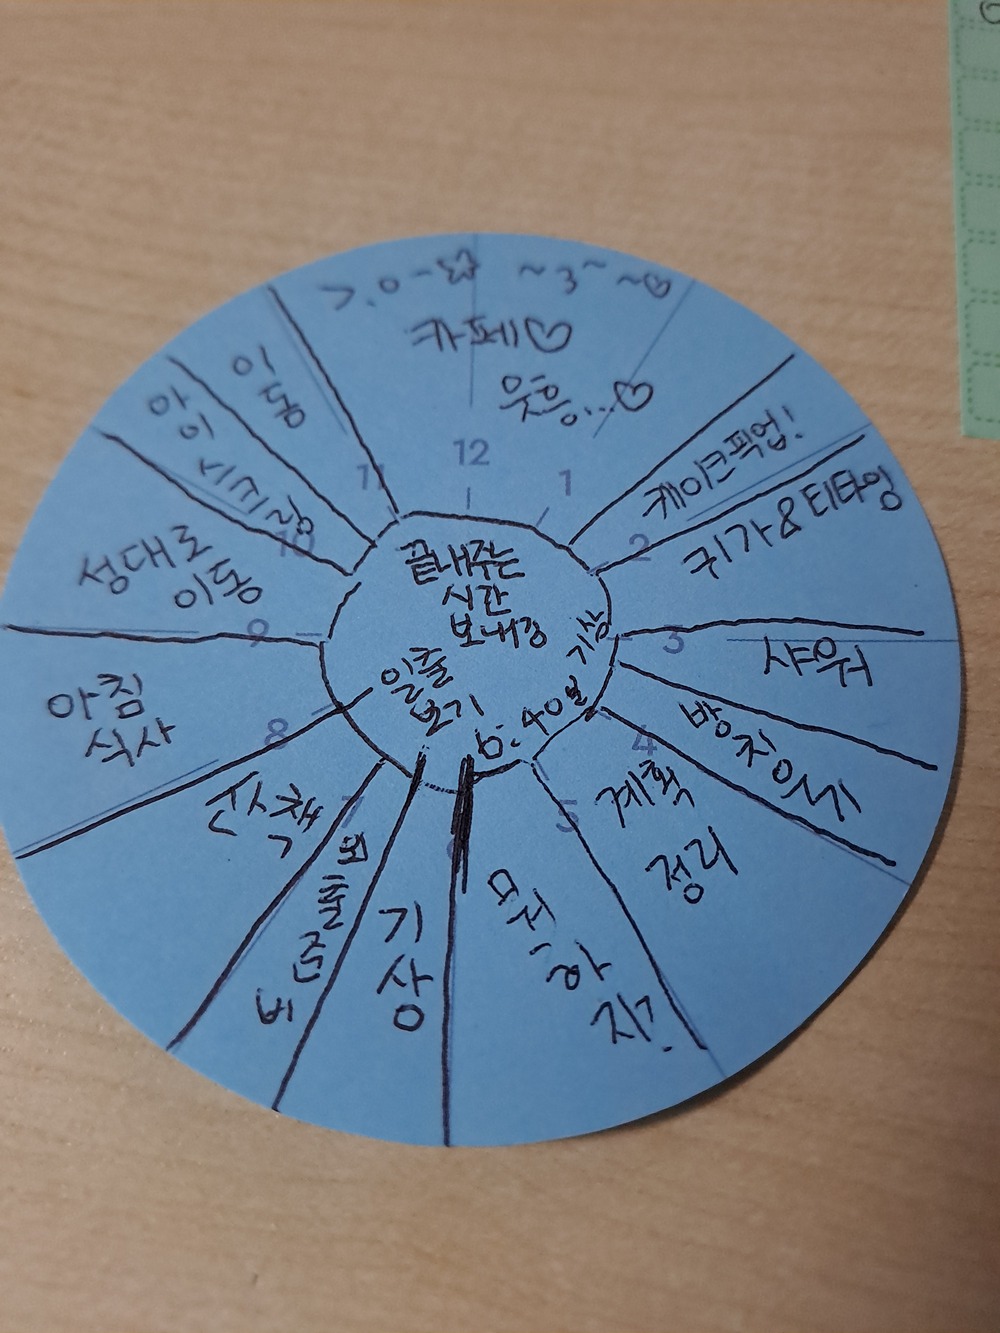 >.0-☆ ~3~ ~♡
카페♡
웃흥...♡
케이크픽업!
귀가&티타임
샤워
방
칭
계획
정리
뭐
하
지?
기
상
외
출
준
비
산책
아침
식사
성대로
이동
아
이
스
크
링
이
동
끝내주는
시간
보내깅
일출
보기
6:40분 기상
12
1
2
3
4
5
6
7
8
9
10
11